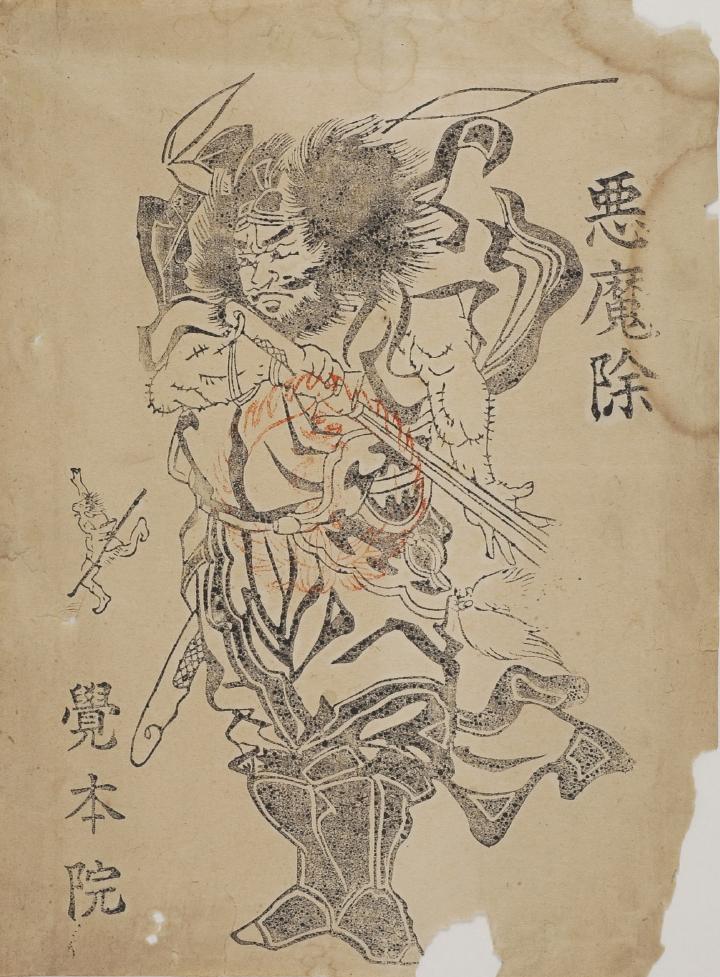 悪魔除
覺本院